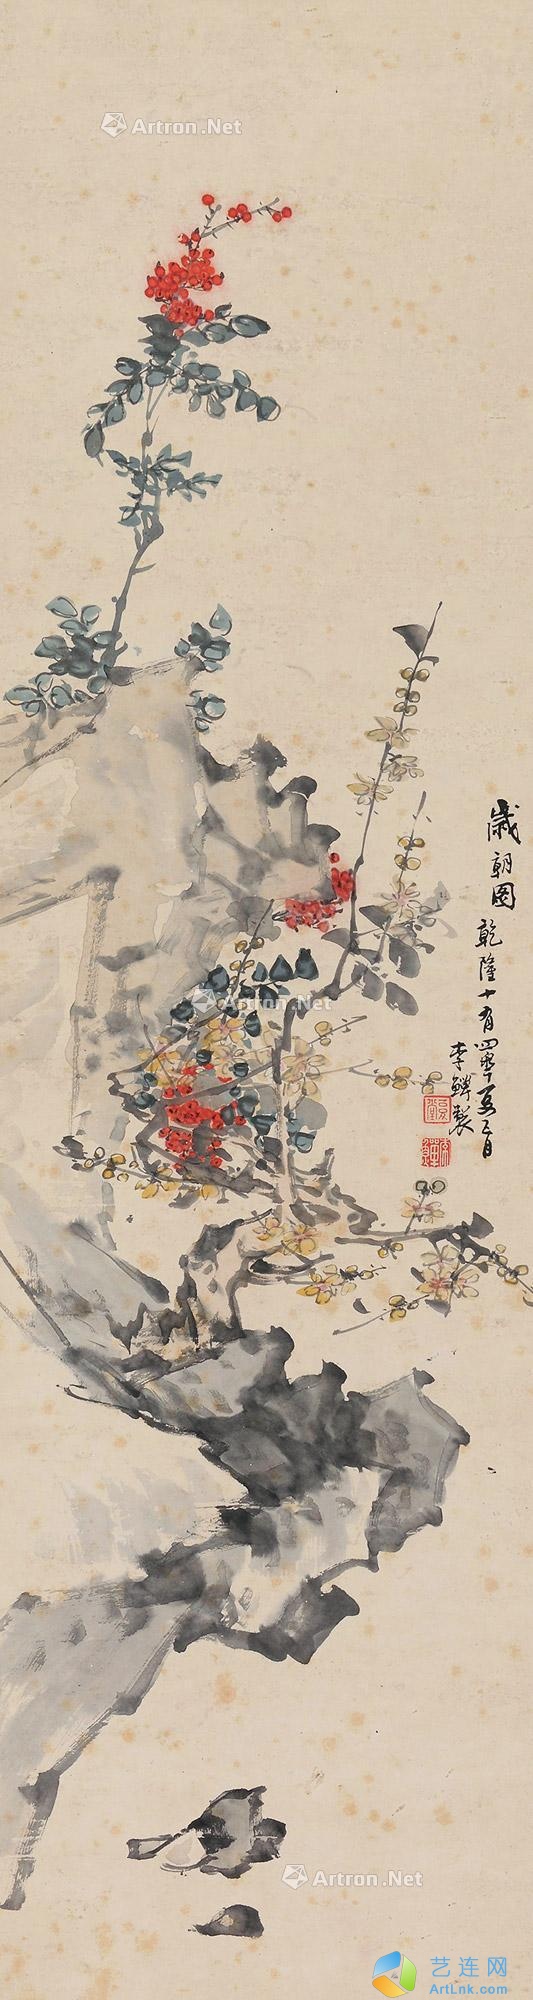 Artron.Net
歲朝圖 乾隆十有四年
李鱓製
Artron.Net
Artron.Net
艺连网
ArtLnk.com